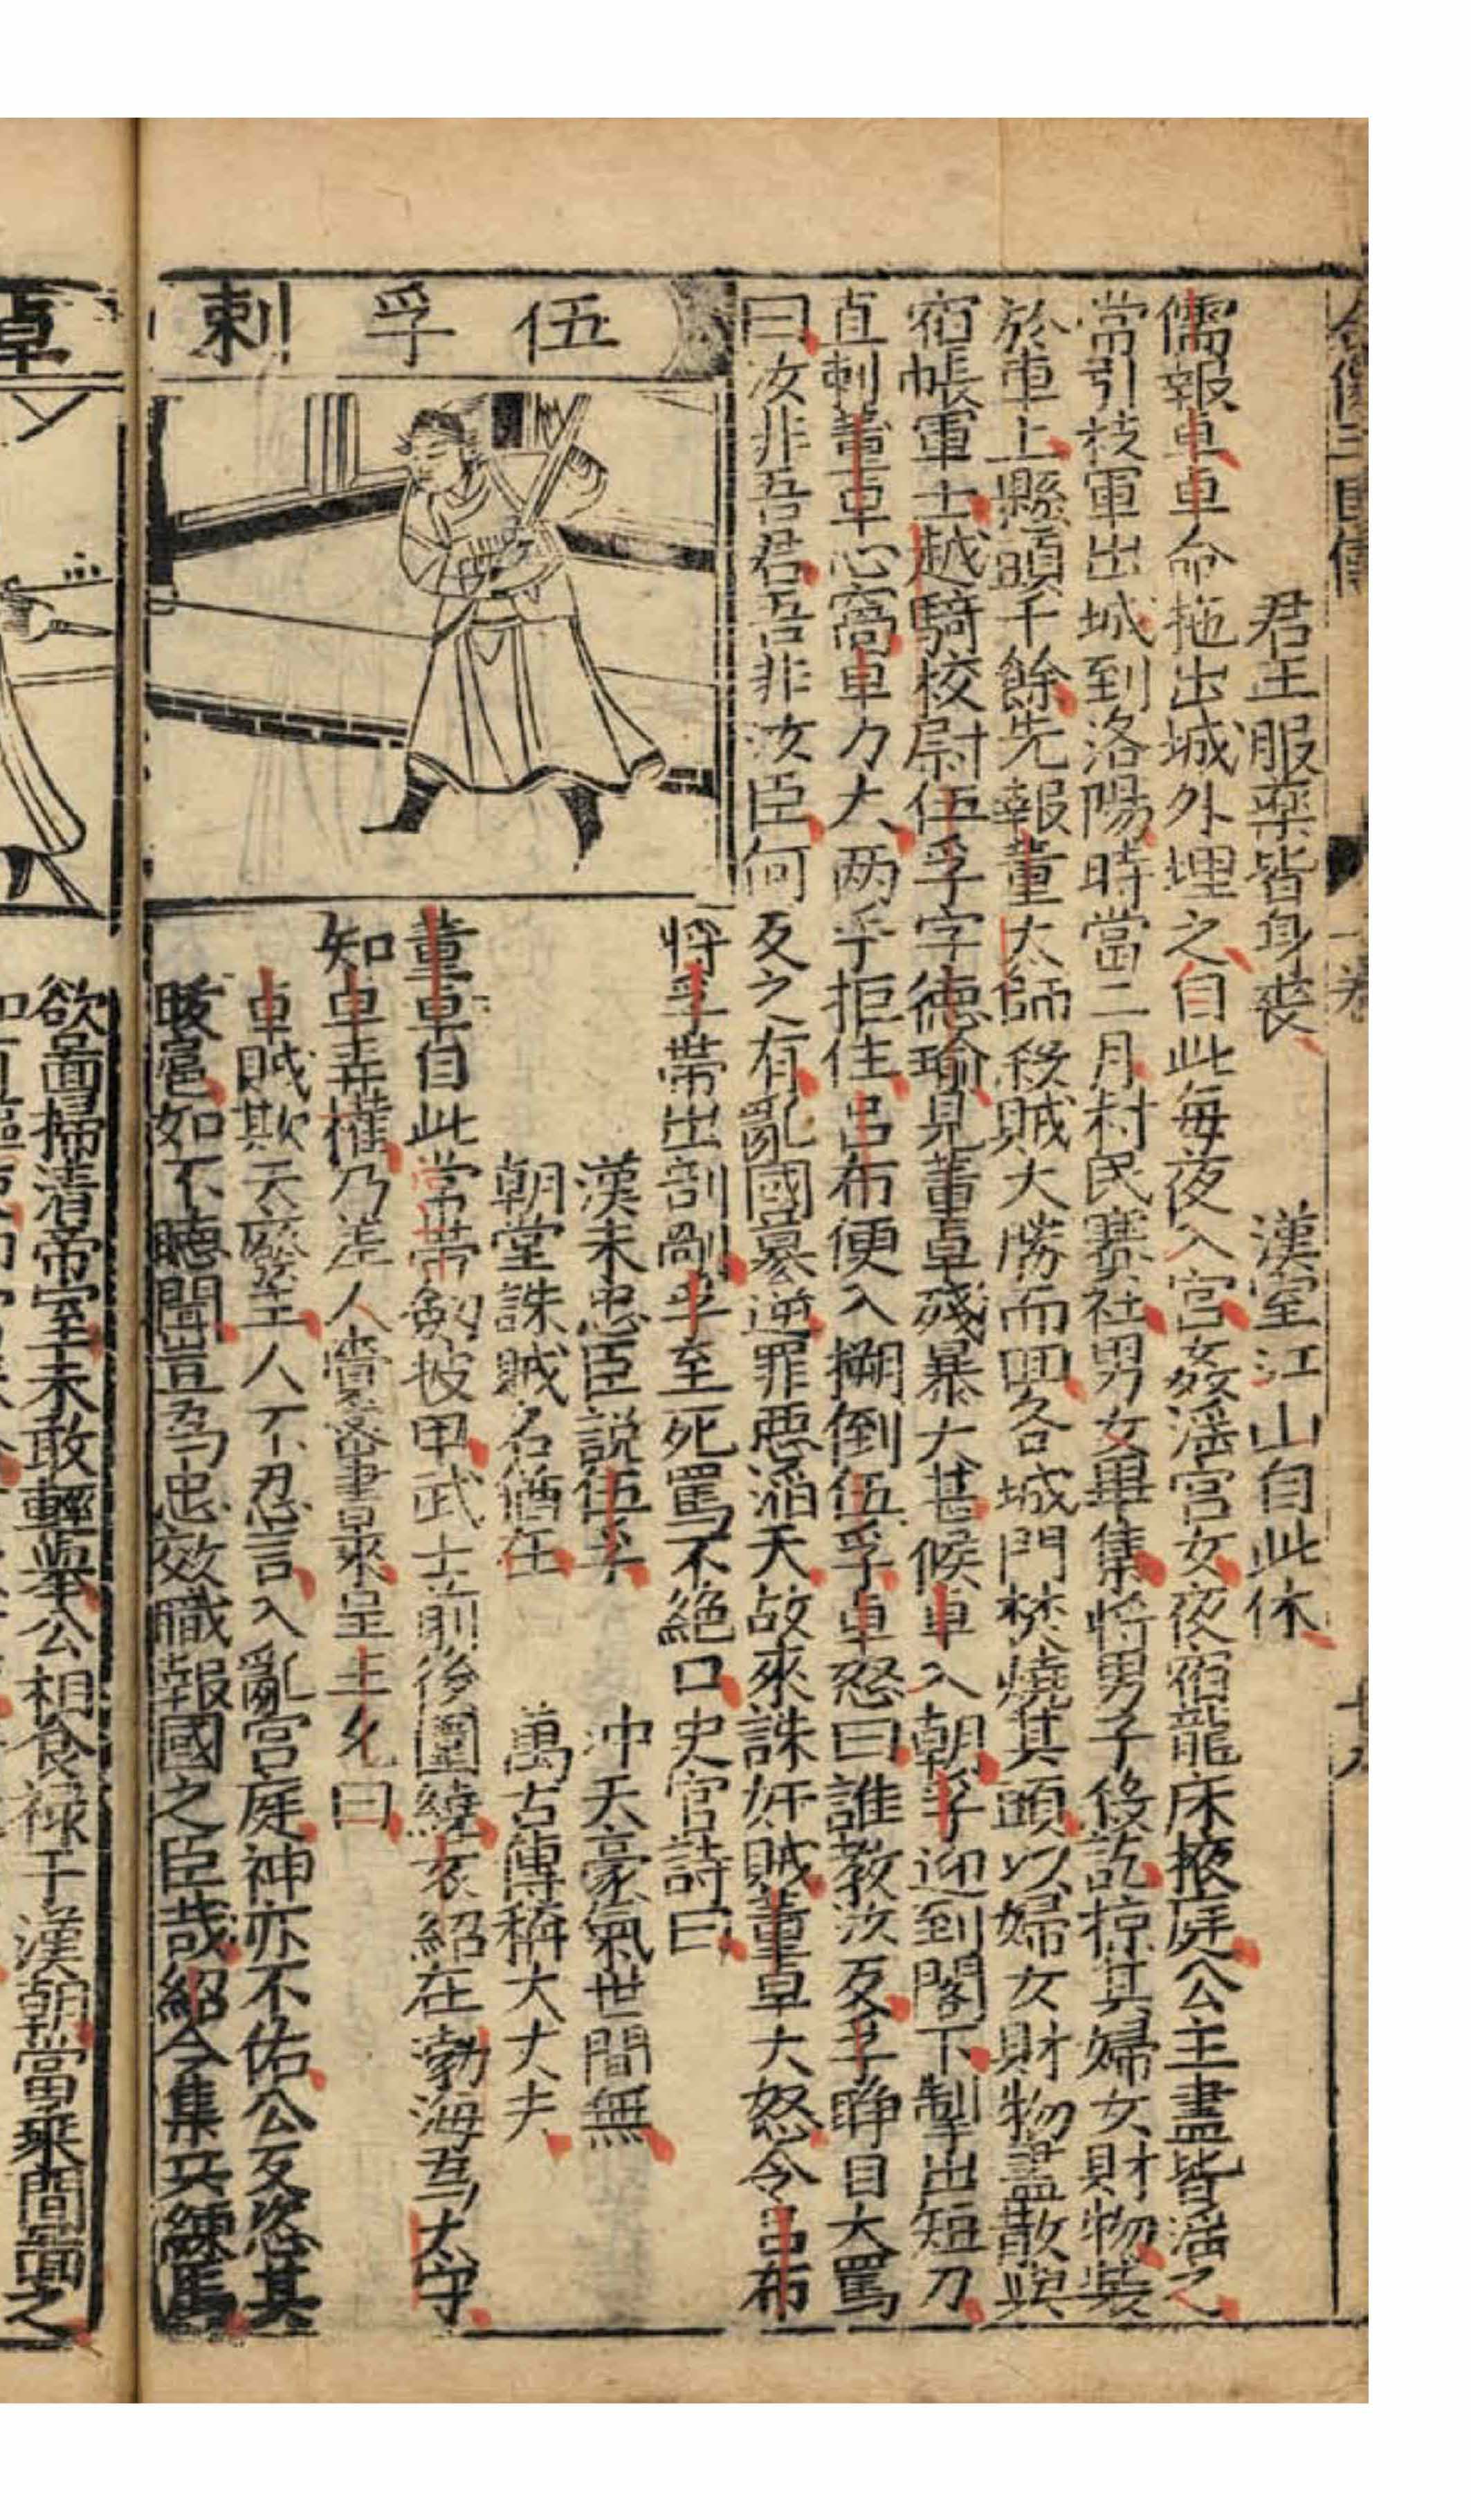 君王服藥皆身喪 漢室江山自此休
儒報卓卓命拖出城外埋之自此每夜入宮姦滛宮女夜宿龍床掖庭公主盡皆滛之
常引枝軍出城到洛陽時當二月村民賽社男女畢集將男子後訖掠其婦女財物裝
於車上縣頭千餘先報董太師殺賊大勝而囬各城門焚燒其頭以婦女財物盡散與
宿帳軍士越騎校尉伍孚字德瑜見董卓殘暴大甚候卓入朝孚迎到閣下掣出短刀
直刺董卓心窩卓力大两手拒住吕布便入搠倒伍孚卓怒曰誰教汝反孚睁目大罵
曰汝非吾君吾非汝臣何反之有亂國募逆罪惡滔天故來誅奸賊董卓大怒令吕布
將孚帶出剖剮孚至死罵不絕口史官詩曰
漢末忠臣說伍孚 冲天豪氣世間無
朝堂誅賊名猶在 萬古傳稱大丈夫
伍孚刺
董卓自此常帶劍披甲武士前後圍繞袁紹在勃海爲太守
知卓弄權乃差人賫密書來呈王允曰
卓賊欺天廢主人不忍言入亂宮庭神亦不佑公反恣其
跋扈如不聴聞豈爲忠效職報國之臣哉紹今集兵練馬
卓
欲面掃清帝室未敢輕舉公相食禄于漢朝當乘間啚之